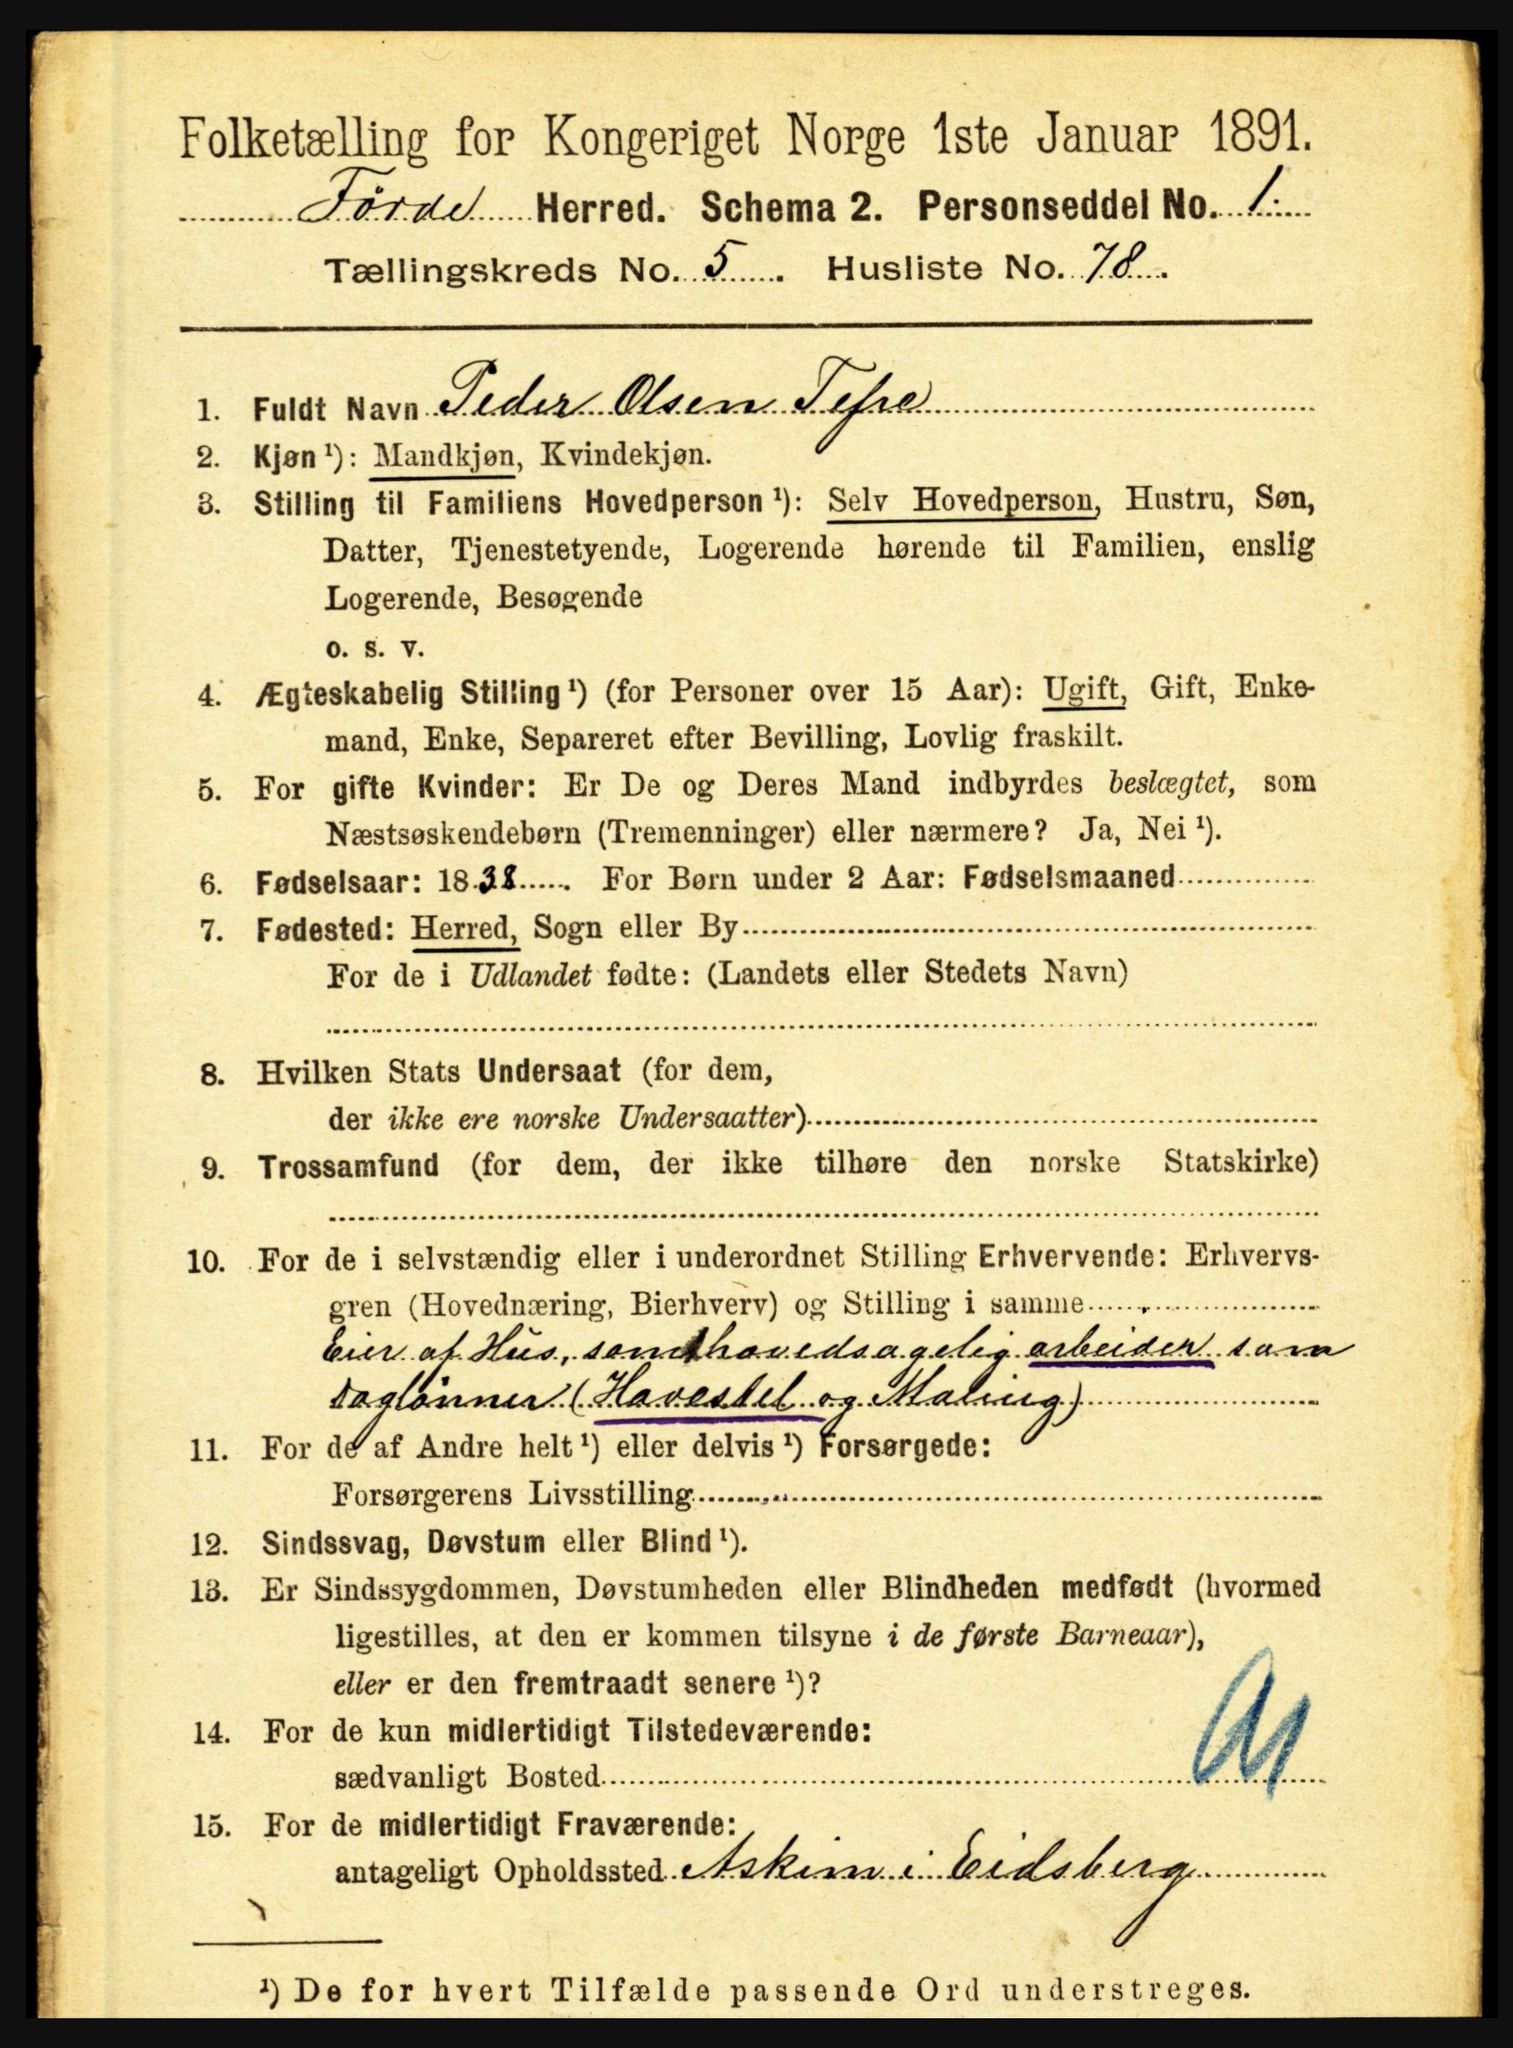 Folketælling for Kongeriget Norge 1ste Januar 1891.
Förde Herred. Schema 2. Personseddel No. 1.
Tællingskreds No. 5. Husliste No. 78.
1. Fuldt Navn Peder Olsen Tefre
2. Kjøn ¹): Mandkjøn, Kvindekjøn.
3. Stilling til Familiens Hovedperson ¹): Selv Hovedperson, Hustru, Søn,
Datter, Tjenestetyende, Logerende hørende til Familien, enslig
Logerende, Besøgende
o. s. v.
4. Ægteskabelig Stilling ¹) (for Personer over 15 Aar): Ugift, Gift, Enke-
mand, Enke, Separeret efter Bevilling, Lovlig fraskilt.
5. For gifte Kvinder: Er De og Deres Mand indbyrdes beslægtet, som
Næstsøskendebørn (Tremenninger) eller nærmere? Ja, Nei ¹).
6. Fødselsaar: 1838. For Børn under 2 Aar: Fødselsmaaned
7. Fødested: Herred, Sogn eller By
For de i Udlandet fødte: (Landets eller Stedets Navn)
8. Hvilken Stats Undersaat (for dem,
der ikke ere norske Undersaatter)
9. Trossamfund (for dem, der ikke tilhøre den norske Statskirke)
10. For de i selvstændig eller i underordnet Stilling Erhvervende: Erhvervs-
gren (Hovednæring, Bierhverv) og Stilling i samme
Eier af Hus, som hovedsagelig arbeider som
Daglönner (Havestel og Maling)
11. For de af Andre helt ¹) eller delvis ¹) Forsørgede:
Forsørgerens Livsstilling
12. Sindssvag, Døvstum eller Blind ¹).
13. Er Sindssygdommen, Døvstumheden eller Blindheden medfødt (hvormed
ligestilles, at den er kommen tilsyne i de første Barneaar),
eller er den fremtraadt senere ¹)?
14. For de kun midlertidigt Tilstedeværende:
sædvanligt Bosted
15. For de midlertidigt Fraværende:
antageligt Opholdssted Askim i Eidsberg
¹) De for hvert Tilfælde passende Ord understreges.